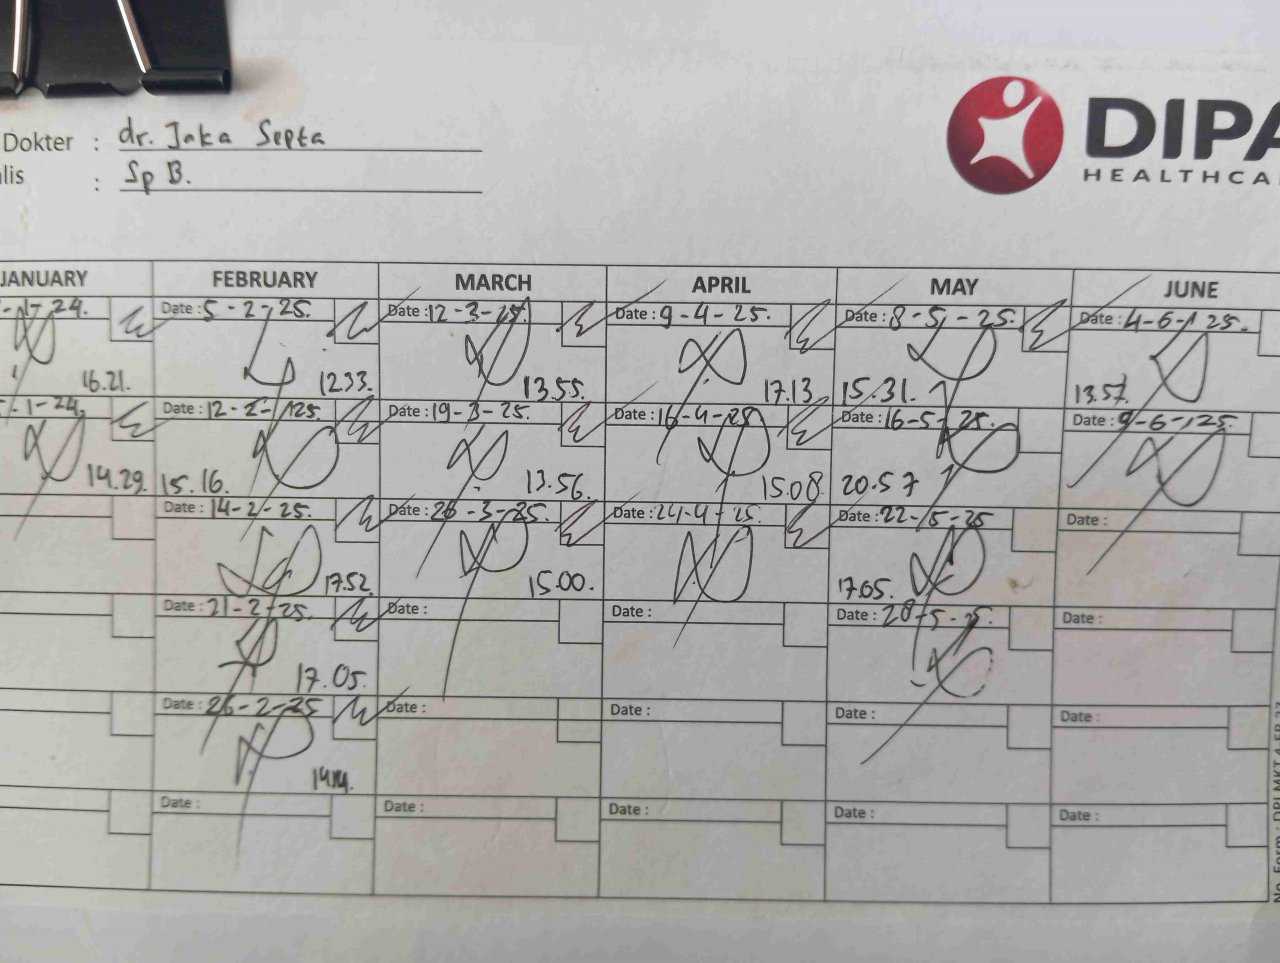 Dokter : dr. Jaka Septa
alis : Sp B.
DIPA
HEALTHCA
JANUARY FEBRUARY MARCH APRIL MAY JUNE
-1-24. Date : 5-2-25. Date : 12-3-25. Date : 9-4-25. Date : 8-5-25. Date : 4-6-25.
16.21. 1233. 13.55. 17.13 15.31. 13.57.
-1-24, Date : 12-2-25. Date : 19-3-25. Date : 16-4-25 Date : 16-5-25. Date : 9-6-25.
14.29. 15.16. 13.56. 15.08 20.57
Date : 14-2-25. Date : 26-3-25. Date : 24-4-25. Date : 22-5-25 Date :
17.52. 15.00. 17.05.
Date : 21-2-25. Date : Date : Date : 28-5-25. Date :
17.05.
Date : 26-2-25 Date : Date : Date : Date :
Date : Date : Date : Date : Date :